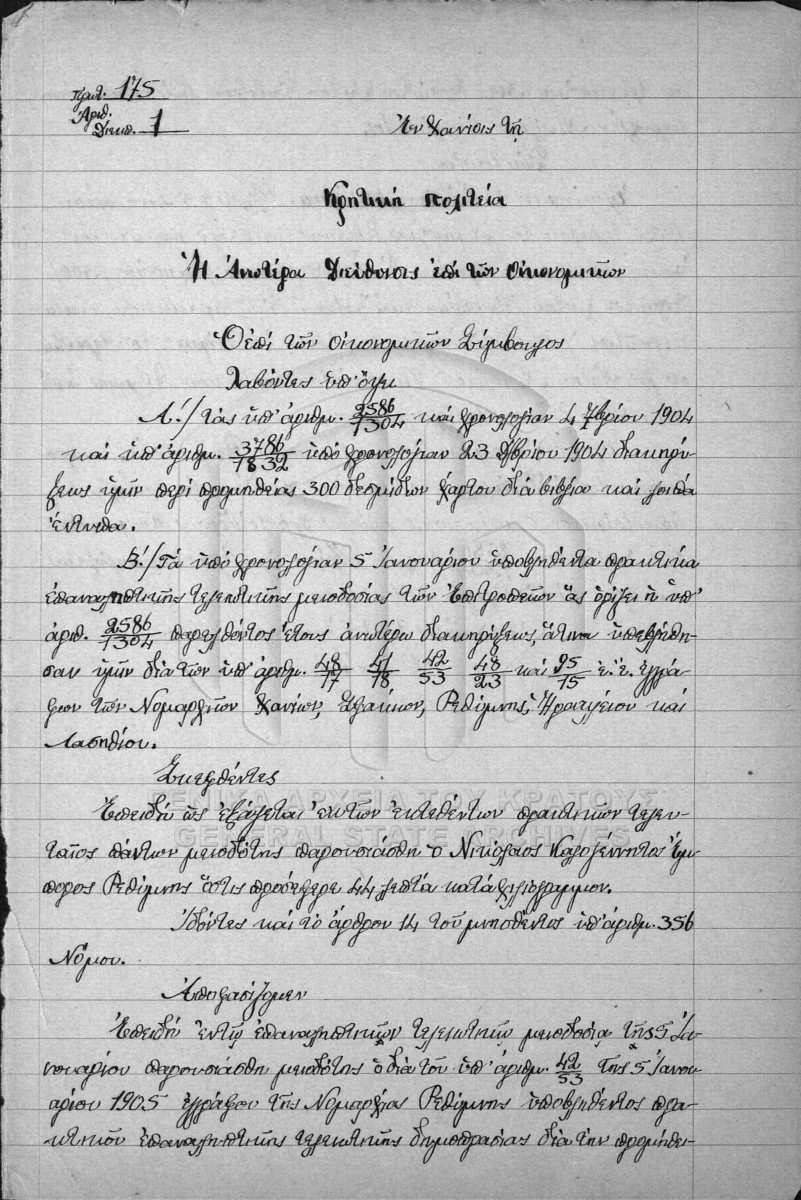 Πρωτ. 175
Αριθ.
Διεκπ. 1
Ἐν Χανίοις τῇ
Κρητική πολιτεία
Ἡ Ἀνωτέρα Διεύθυνσις ἐπί τῶν Οἰκονομικῶν
Ὁ ἐπί τῶν Οἰκονομικῶν Σύμβουλος
Λαβόντες ὑπ' ὄψει
Α!/ τάς ὑπ' ἀριθμ. 2586/1304 καί χρονολογίαν 4 7βρίου 1904
καί ὑπ' ἀριθμ. 3786/1832 ὑπό χρονολογίαν 23 9βρίου 1904 διακηρύ-
ξεως ἡμῶν περί προμηθείας 300 δεσμίδων χάρτου διά βιβλία καί λοιπά
ἔντυπα.
Β!/ Τά ὑπό χρονολογίαν 5 Ἰανουαρίου ὑποβληθέντα πρακτικά
ἐπαναληπτικῆς τελειωτικῆς μειοδοσίας τῶν Ἐπιτροπειῶν ἅς ὁρίζει ἡ ὑπ'
ἀριθ. 2586/1304 παρελθόντος ἔτους ἀνωτέρω διακηρύξεως, ἅτινα ὑπεβλήθη-
σαν ἡμῖν διά τῶν ὑπ' ἀριθμ. 48/17 41/18 42/53 48/23 καί 95/15 ἐ. ἐ. ἐγγρά-
φων τῶν Νομαρχιῶν Χανίων, Σφακίων, Ρεθύμνης, Ἡρακλείου καί
Λασηθίου.
Σκεφθέντες
Ἐπειδή ὡς ἐξάγεται ἐκ τῶν ἐκτεθέντων πρακτικῶν τελευ-
ταῖος πάντων μειοδότης παρουσιάσθη ὁ Νικόλαος Καλογέννητος Ἔμ-
πορος Ρεθύμνης ὅστις προσέφερε 44 λεπτά κατά χιλιόγραμμον.
Ἰδόντες καί τό ἄρθρον 14 τοῦ μνησθέντος ὑπ' ἀριθμ. 356
Νόμου.
Ἀποφασίζομεν
Ἐπειδή ἐν τῇ ἐπαναληπτικῇ τελειωτικῇ μειοδοσίᾳ τῆς 5 Ἰα-
νουαρίου παρουσιάσθη μειοδότης ὁ διά τοῦ ὑπ' ἀριθμ. 42/53 τῆς 5 Ἰανου-
αρίου 1905 ἐγγράφου τῆς Νομαρχίας Ρεθύμνης ὑποβληθέντος πρα-
κτικοῦ ἐπαναληπτικῆς τελειωτικῆς δημοπρασίας διά την προμήθει-
ΓΕΝΙΚΑ ΑΡΧΕΙΑ ΤΟΥ ΚΡΑΤΟΥΣ
GENERAL STATE ARCHIVES